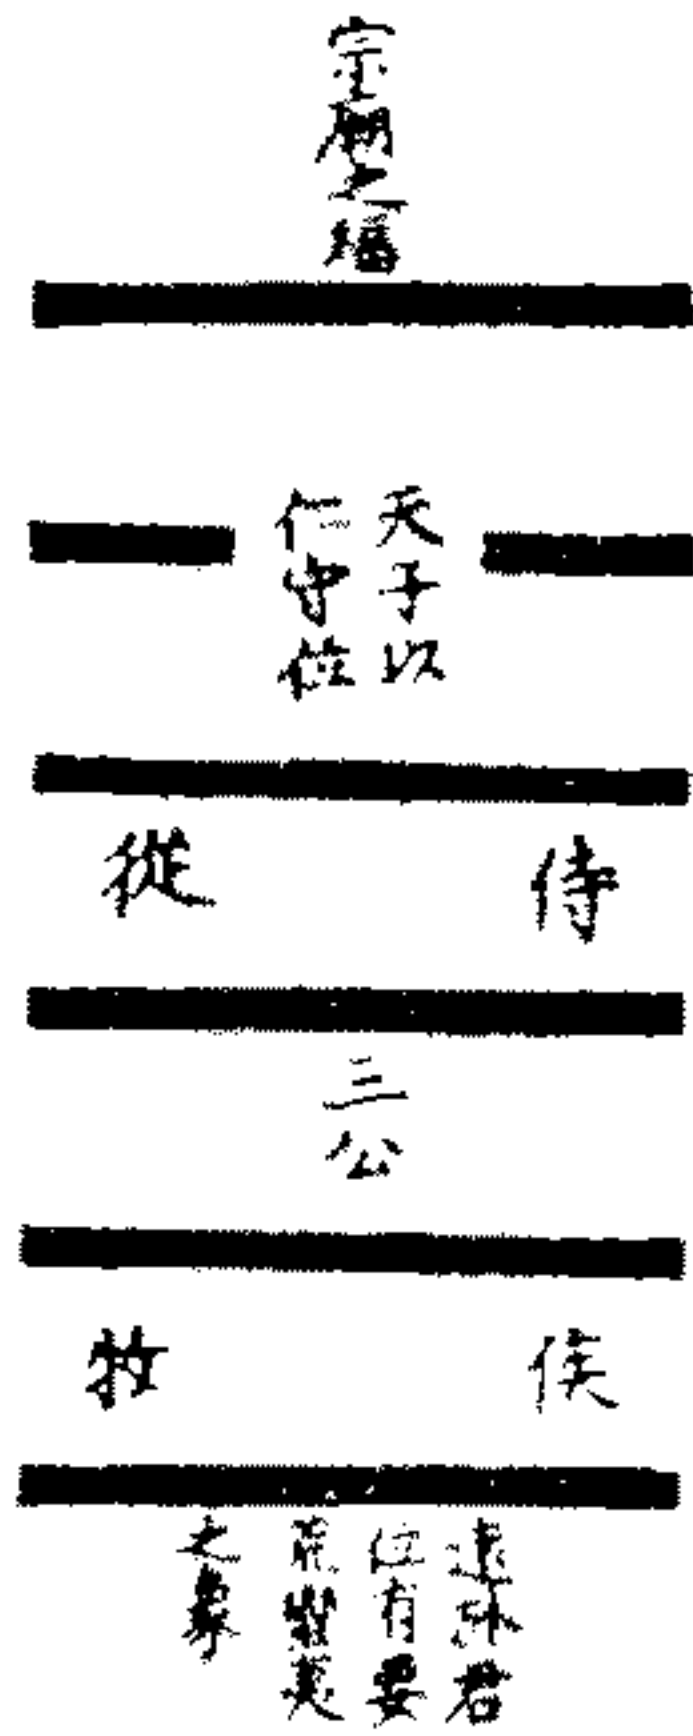 宗廟之福
天子以
仁守位
侍
從
三公
侯
牧
遠於君
位有要
荒蠻夷
之象